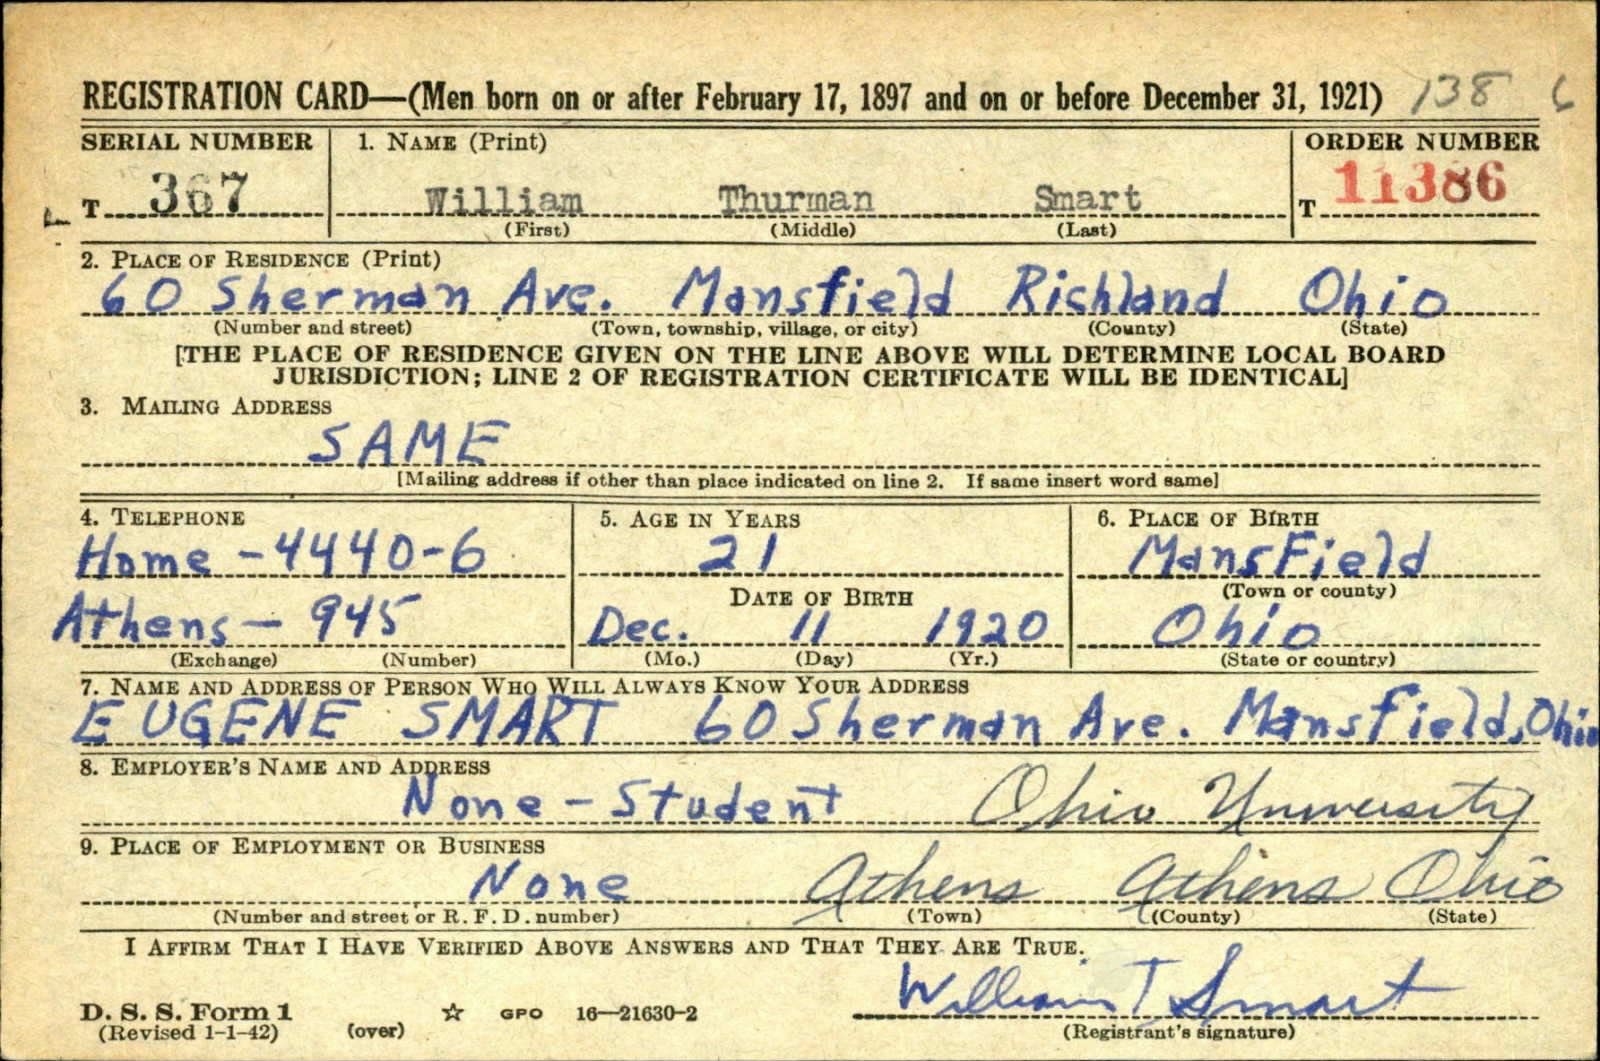 REGISTRATION CARD—(Men born on or after February 17, 1897 and on or before December 31, 1921) 138 6
SERIAL NUMBER 1. NAME (Print) ORDER NUMBER
T 367 William Thurman Smart T 11386
(First) (Middle) (Last)
2. PLACE OF RESIDENCE (Print)
60 Sherman Ave. Mansfield Richland Ohio
(Number and street) (Town, township, village, or city) (County) (State)
[THE PLACE OF RESIDENCE GIVEN ON THE LINE ABOVE WILL DETERMINE LOCAL BOARD
JURISDICTION; LINE 2 OF REGISTRATION CERTIFICATE WILL BE IDENTICAL]
3. MAILING ADDRESS
SAME
[Mailing address if other than place indicated on line 2. If same insert word same]
4. TELEPHONE 5. AGE IN YEARS 6. PLACE OF BIRTH
Home - 4440-6 21 Mansfield
DATE OF BIRTH (Town or county)
Athens - 945 Dec. 11 1920 Ohio
(Exchange) (Number) (Mo.) (Day) (Yr.) (State or country)
7. NAME AND ADDRESS OF PERSON WHO WILL ALWAYS KNOW YOUR ADDRESS
EUGENE SMART 60 Sherman Ave. Mansfield, Ohio
8. EMPLOYER'S NAME AND ADDRESS
None - Student Ohio University
9. PLACE OF EMPLOYMENT OR BUSINESS
None Athens Athens Ohio
(Number and street or R. F. D. number) (Town) (County) (State)
I AFFIRM THAT I HAVE VERIFIED ABOVE ANSWERS AND THAT THEY ARE TRUE.
William T Smart
D. S. S. Form 1 ☆ GPO 16—21630-2
(Revised 1-1-42) (over) (Registrant's signature)